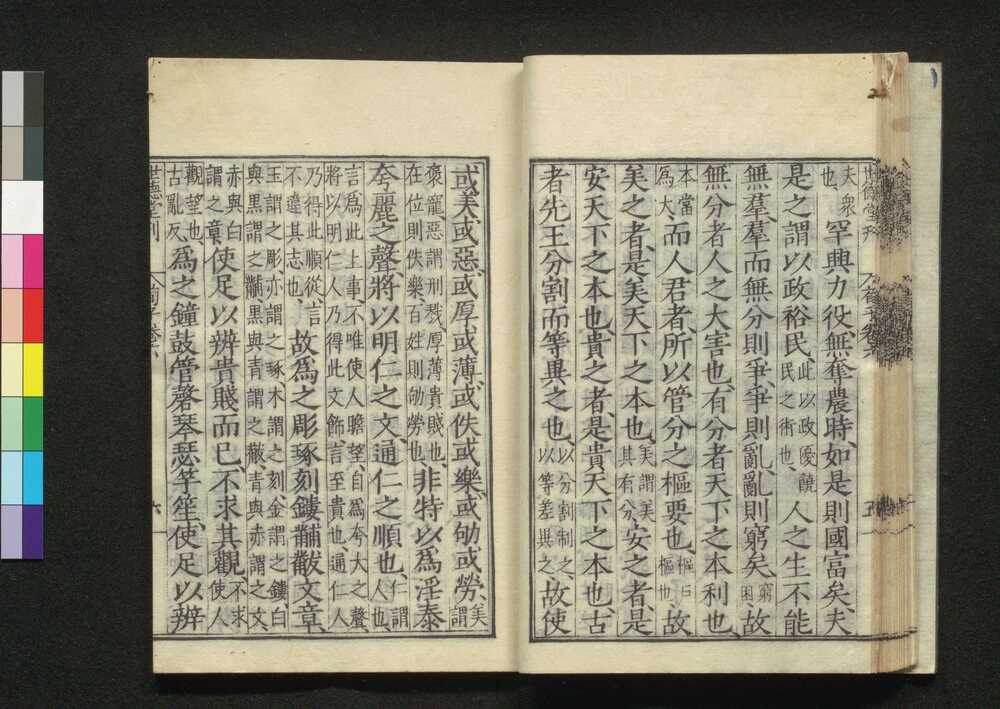 夫衆
也
罕興力役無奪農時如是則國富矣夫
是之謂以政裕民
此以政優饒
民之術也
人之生不能
無羣羣而無分則爭爭則亂亂則窮矣
窮
困
故
無分者人之大害也有分者天下之本利也
本當
爲大
而人君者所以管分之樞要也
樞戶
樞也
故
美之者是美天下之本也
美謂美
其有分
安之者是
安天下之本也貴之者是貴天下之本也古
者先王分割而等異之也
以分割制之
以等差異之
故使
或美或惡或厚或薄或佚或樂或劬或勞
美謂
褒寵惡謂刑戮厚薄貴賤也
在位則佚樂百姓則劬勞也
非特以爲淫泰
夸麗之聲將以明仁之文通仁之順也
仁謂
人也
言爲此上事不唯使人瞻望自爲夸大之聲
將以明仁人乃得此文飾言至貴也通仁人
乃得此順從言
不違其志也
故爲之彫琢刻鏤黼黻文章
玉謂之彫亦謂之琢木謂之刻金謂之鏤白
與黑謂之黼黑與青謂之黻青與赤謂之文
赤與白
謂之章
使足以辨貴賤而已不求其觀
不求
使人
觀望也
古亂反
爲之鐘鼓管磬琴瑟竽笙使足以辨
世德堂刊
荀子卷六
六